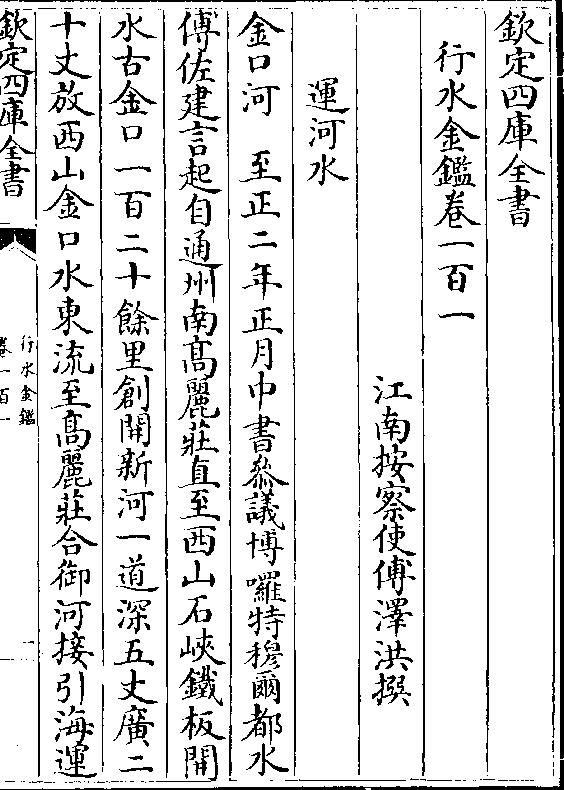 欽定四庫全書
行水金鑑卷一百一
江南按察使傅澤洪撰
運河水
金口河　至正二年正月中書參議博囉特穆爾都水
傅佐建言起自通州南高麗莊直至西山石峽鐵板開
水古金口一百二十餘里創開新河一道深五丈廣二
十丈放西山金口水東流至高麗莊合御河接引海運
欽定四庫全書
行水金鑑
卷一百一
一